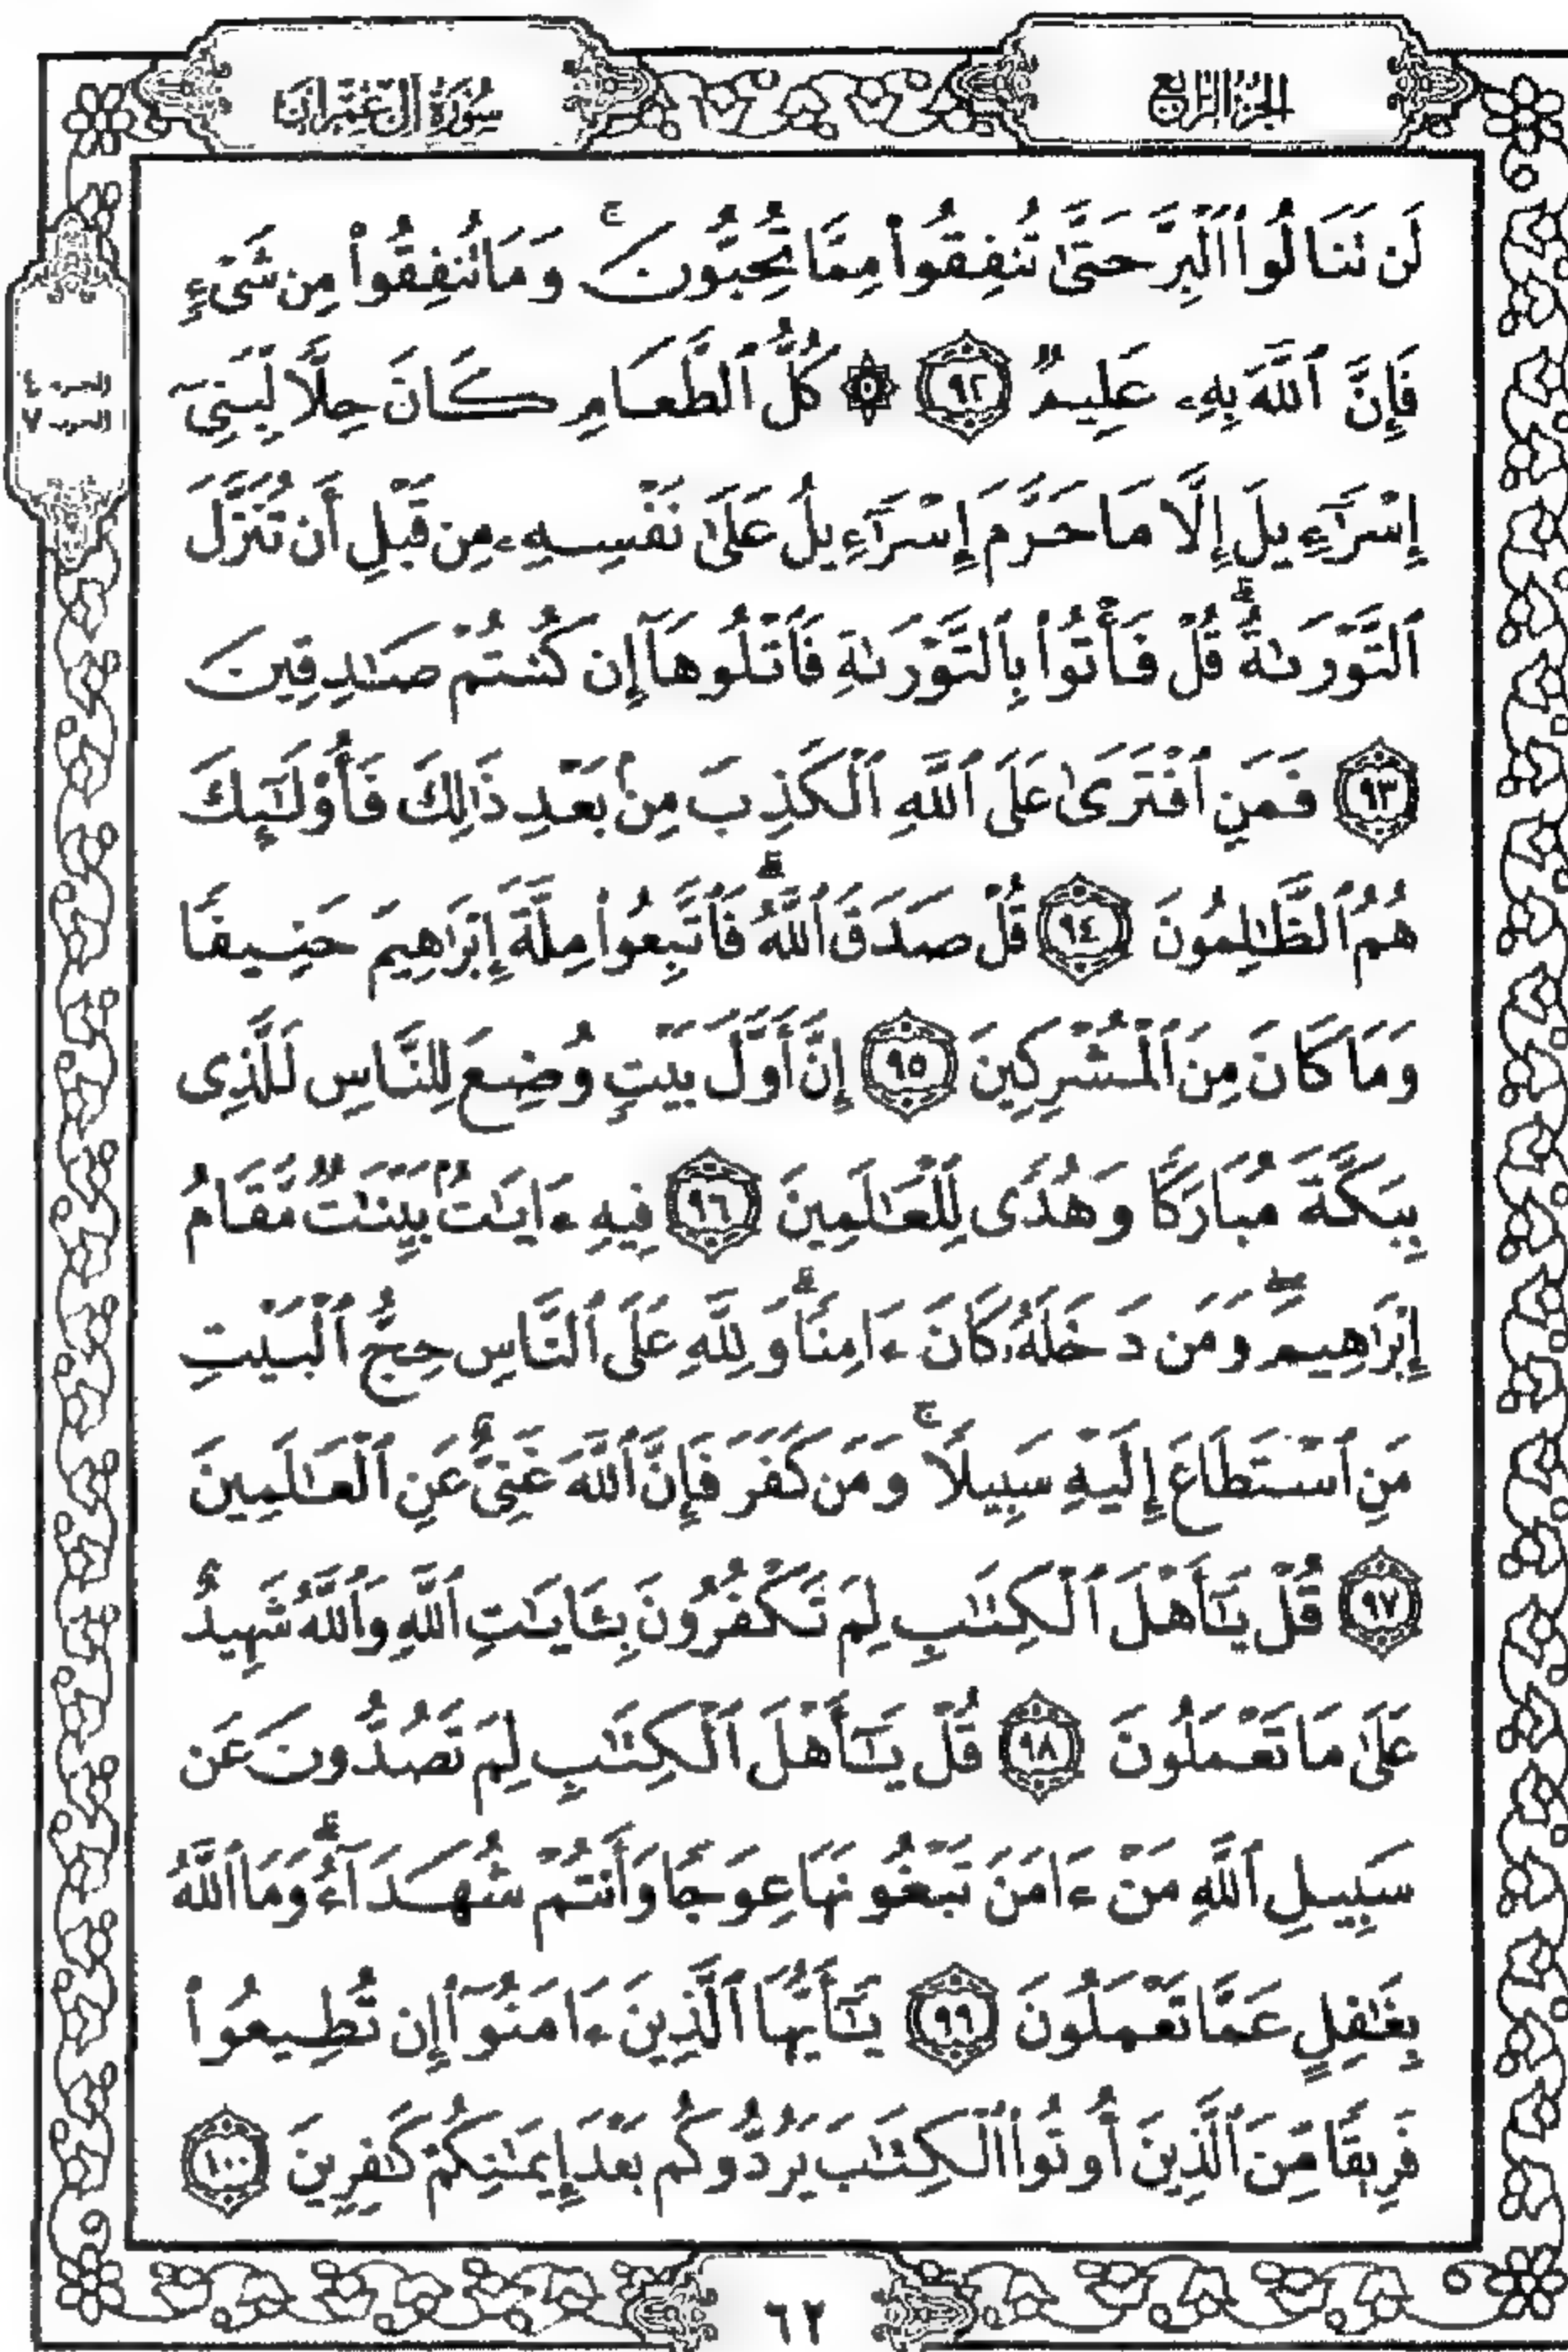 الجزء الرابع
سُورَةُ آلِ عِمْرَانَ
الجزء ٤
الحزب ٧
لَن نَنَالُوا۟ ٱلْبِرَّ حَتَّىٰ تُنفِقُوا۟ مِمَّا تُحِبُّونَ ۚ وَمَا نُنفِقُوا۟ مِن شَىْءٍ
فَإِنَّ ٱللَّهَ بِهِۦ عَلِيمٌ ٩٢ ۞ كُلُّ ٱلطَّعَامِ كَانَ حِلًّا لِّبَنِىٓ
إِسْرَٰٓءِيلَ إِلَّا مَا حَرَّمَ إِسْرَٰٓءِيلُ عَلَىٰ نَفْسِهِۦ مِن قَبْلِ أَن تُنَزَّلَ
ٱلتَّوْرَىٰةُ ۗ قُلْ فَأْتُوا۟ بِٱلتَّوْرَىٰةِ فَٱتْلُوهَآ إِن كُنتُمْ صَـٰدِقِينَ
٩٣ فَمَنِ ٱفْتَرَىٰ عَلَى ٱللَّهِ ٱلْكَذِبَ مِنۢ بَعْدِ ذَٰلِكَ فَأُو۟لَـٰٓئِكَ
هُمُ ٱلظَّـٰلِمُونَ ٩٤ قُلْ صَدَقَ ٱللَّهُ ۗ فَٱتَّبِعُوا۟ مِلَّةَ إِبْرَٰهِيمَ حَنِيفًا
وَمَا كَانَ مِنَ ٱلْمُشْرِكِينَ ٩٥ إِنَّ أَوَّلَ بَيْتٍ وُضِعَ لِلنَّاسِ لَلَّذِى
بِبَكَّةَ مُبَارَكًا وَهُدًى لِّلْعَـٰلَمِينَ ٩٦ فِيهِ ءَايَـٰتٌۢ بَيِّنَـٰتٌ مَّقَامُ
إِبْرَٰهِيمَ ۖ وَمَن دَخَلَهُۥ كَانَ ءَامِنًا ۗ وَلِلَّهِ عَلَى ٱلنَّاسِ حِجُّ ٱلْبَيْتِ
مَنِ ٱسْتَطَاعَ إِلَيْهِ سَبِيلًا ۚ وَمَن كَفَرَ فَإِنَّ ٱللَّهَ غَنِىٌّ عَنِ ٱلْعَـٰلَمِينَ
٩٧ قُلْ يَـٰٓأَهْلَ ٱلْكِتَـٰبِ لِمَ تَكْفُرُونَ بِـَٔايَـٰتِ ٱللَّهِ وَٱللَّهُ شَهِيدٌ
عَلَىٰ مَا تَعْمَلُونَ ٩٨ قُلْ يَـٰٓأَهْلَ ٱلْكِتَـٰبِ لِمَ تَصُدُّونَ عَن
سَبِيلِ ٱللَّهِ مَنْ ءَامَنَ تَبْغُونَهَا عِوَجًا وَأَنتُمْ شُهَدَآءُ ۗ وَمَا ٱللَّهُ
بِغَـٰفِلٍ عَمَّا تَعْمَلُونَ ٩٩ يَـٰٓأَيُّهَا ٱلَّذِينَ ءَامَنُوٓا۟ إِن تُطِيعُوا۟
فَرِيقًا مِّنَ ٱلَّذِينَ أُوتُوا۟ ٱلْكِتَـٰبَ يَرُدُّوكُم بَعْدَ إِيمَـٰنِكُمْ كَـٰفِرِينَ ١٠٠
٦٢